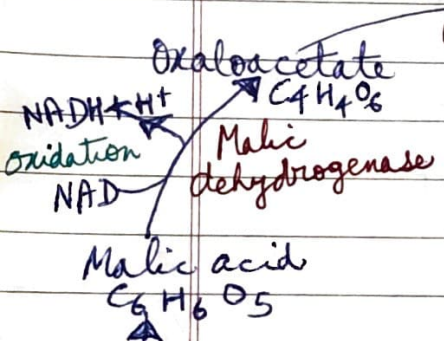 Oxaloacetate
C4H4O6
NADH+H+
oxidation
Malic
dehydrogenase
NAD
Malic acid
C6H6O5